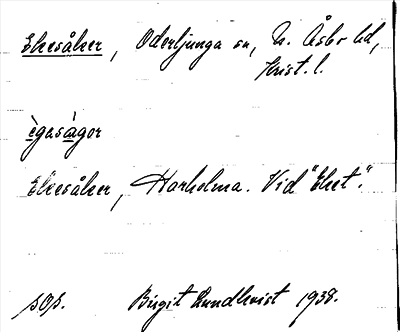 Ekesåker, Oderljunga sn, N. Åsbo hd,
Krist. l.
ègasàgor
Ekesåker, Harholma. Vid "Eket".
sOp. Birgit Lundkvist 1938.